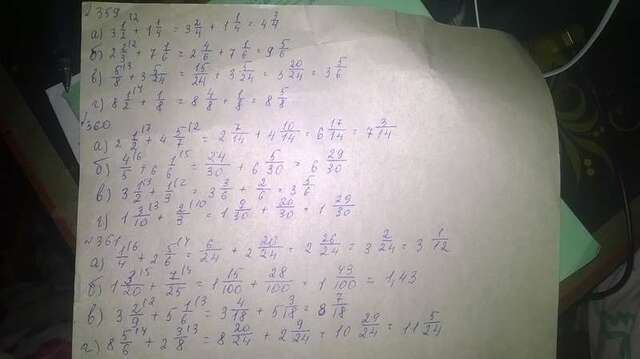 №359
а) 3 1/2 \2 + 1 1/4 = 3 2/4 + 1 1/4 = 4 3/4
б) 2 2/3 \2 + 7 1/6 = 2 4/6 + 7 1/6 = 9 5/6
в) 5/8 \3 + 3 5/24 = 15/24 + 3 5/24 = 3 20/24 = 3 5/6
г) 8 1/2 \4 + 1/8 = 8 4/8 + 1/8 = 8 5/8
№360
а) 2 1/2 \7 + 4 5/7 \2 = 2 7/14 + 4 10/14 = 6 17/14 = 7 3/14
б) 4/5 \6 + 6 1/6 \5 = 24/30 + 6 5/30 = 6 29/30
в) 3 1/2 \3 + 1/3 \2 = 3 3/6 + 2/6 = 3 5/6
г) 1 3/10 \3 + 2/3 \10 = 1 9/30 + 20/30 = 1 29/30
№361
а) 1/4 \6 + 2 5/6 \4 = 6/24 + 2 20/24 = 2 26/24 = 3 2/24 = 3 1/12
б) 1 3/20 \5 + 7/25 \4 = 1 15/100 + 28/100 = 1 43/100 = 1,43
в) 3 2/9 \2 + 5 1/6 \3 = 3 4/18 + 5 3/18 = 8 7/18
г) 8 5/6 \4 + 2 3/8 \3 = 8 20/24 + 2 9/24 = 10 29/24 = 11 5/24